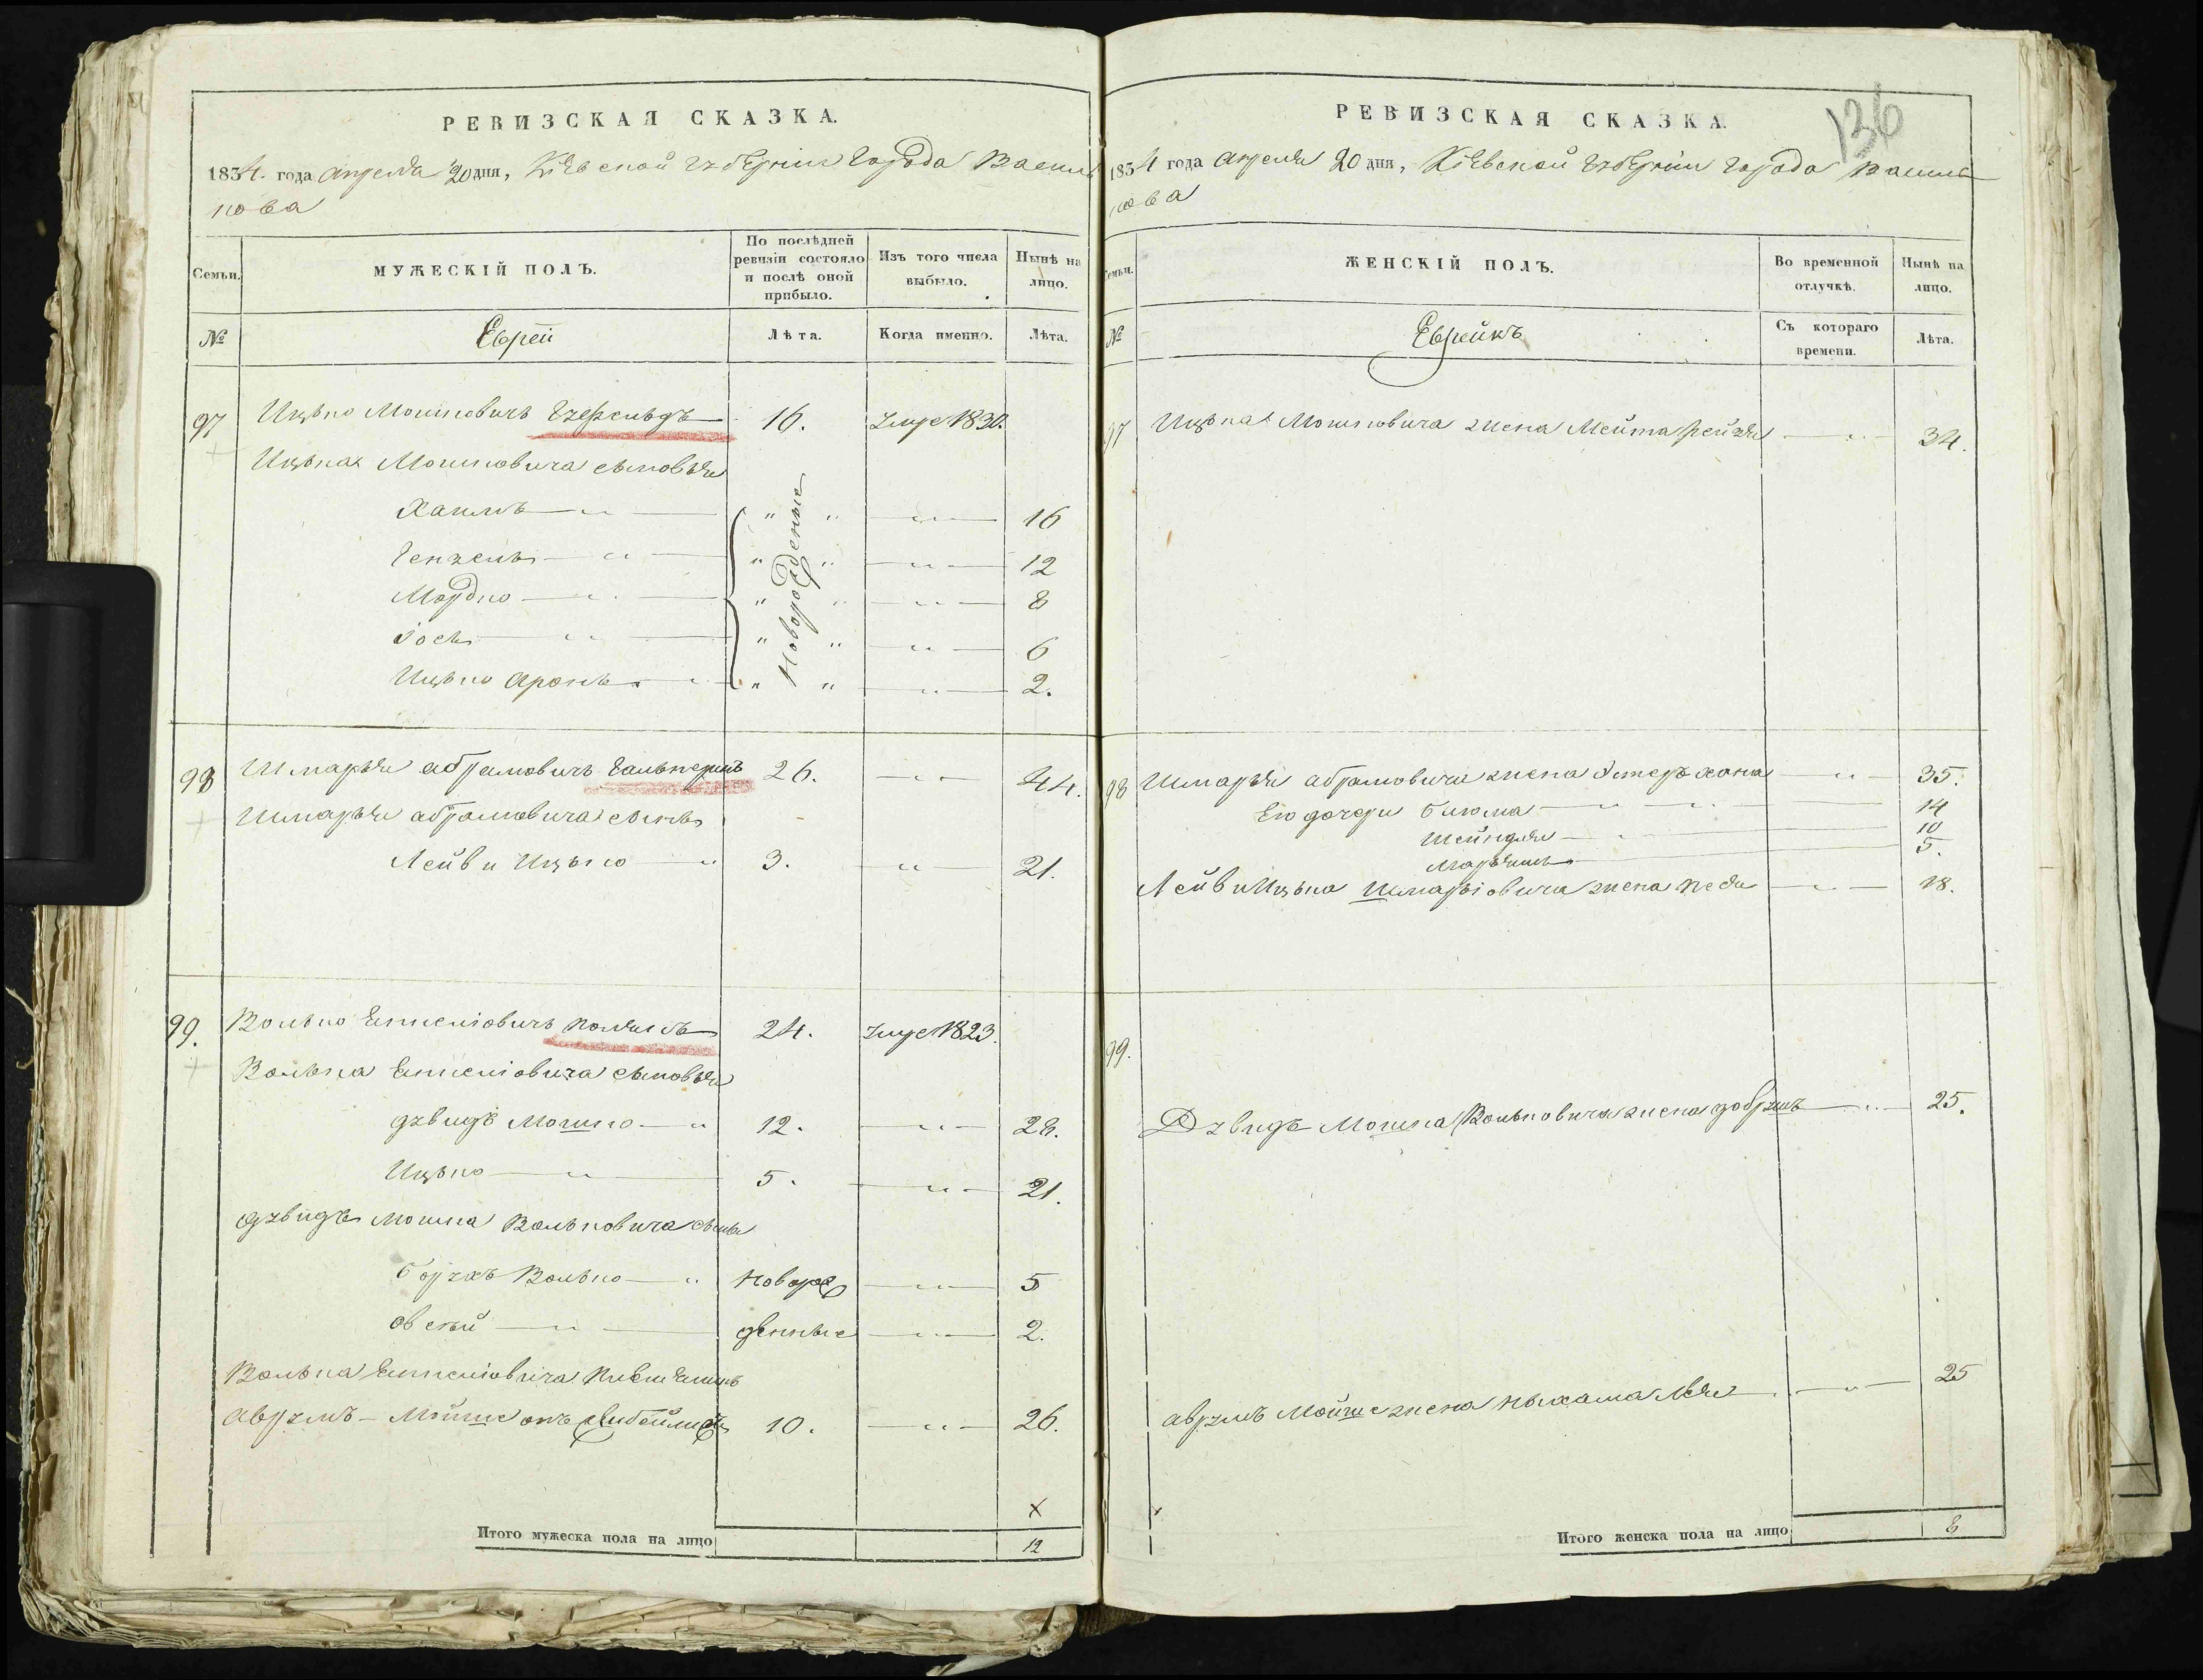 РЕВИЗСКАЯ СКАЗКА.
1834. года Апреля 20 дня, Кіевской губерніи города Василь
кова
Семьи.
МУЖЕСКІЙ ПОЛЪ.
По послѣдней ревизіи состояло и послѣ оной прибыло.
Изъ того числа выбыло.
Нынѣ на лицо.
№
Еврей
Лѣта.
Когда именно.
Лѣта.
97 Ицько Мошковичъ 16. умре 1830.
Ицька Мошковича сыновья
Новорожденные
Хаимъ " " 16
Гензель " " 12
Мордко " " 8
Іось " " 6
Ицько Аронъ " " 2.
98 Шмарья Абрамовичъ Гальперинъ 26. 44.
Шмарьи Абрамовича сынъ
Лейви Ицько 3. 21.
99. Волько 24. умре 1823.
Волька сыновья
Дувидъ Мошко 12. 28.
Ицько 5. 21.
Дувидъ Мошка Вольковича сыны
Борухъ Волько Новорож 5
Овсѣй денные 2.
Волька
Аврумъ-Мойше онъ 10. 26.
х
Итого мужеска пола на лицо 12
РЕВИЗСКАЯ СКАЗКА.
136
1834 года Апреля 20 дня, Кіевской губерніи города Василь
кова
Семьи.
ЖЕНСКІЙ ПОЛЪ.
Во временной отлучкѣ.
Нынѣ на лицо.
№
Еврейкъ
Съ котораго времени.
Лѣта.
97 Ицька Мошковича жена Рейзя 34.
98 Шмарьи Абрамовича жена Эстеръ Хана 35.
Его дочери Блюма 14
Шейндля 10
Марьяшъ 5.
Лейви Ицька Шмарьіовича жена Песя 18.
99.
Дувидъ Мошка Вольковича жена Добрушъ 25.
Аврумъ Мойше жена Ныхама Лея 25
х
Итого женска пола на лицо 8